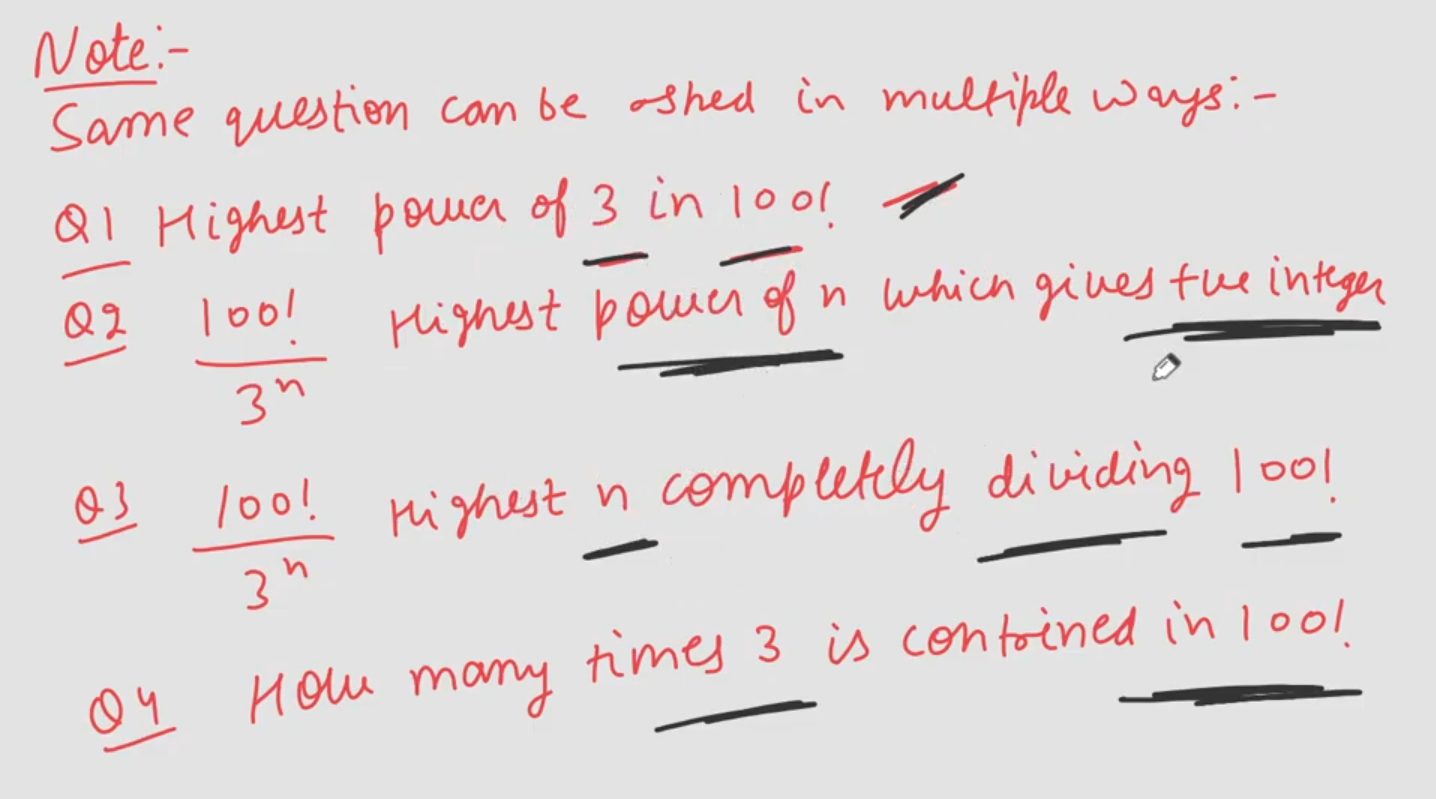 Note:-
Same question can be asked in multiple ways:-
Q1 Highest power of 3 in 100!
Q2 100!/3ⁿ Highest power of n which gives +ve integer
Q3 100!/3ⁿ Highest n completely dividing 100!
Q4 How many times 3 is contained in 100!